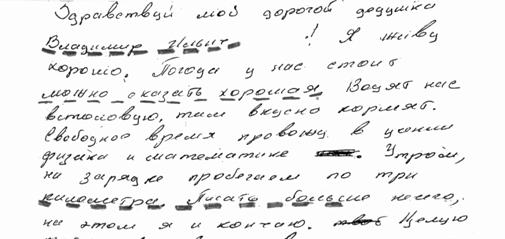 Здравствуй мой дорогой дедушка
Владимир Ильич ! Я живу
хорошо. Погода у нас стоит
можно сказать хорошая. Водят нас
встоловую, там вкусно кормят.
Свободное время провожу в
физика и математике . Утром,
на зарядке пробегаем по три
километра. Писать больше нечего,
на этом я и кончаю. Целую